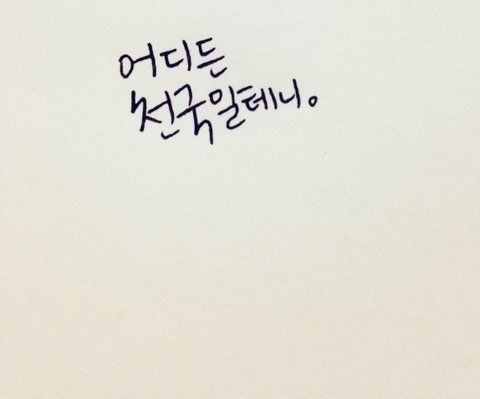 어디든
천국일테니.